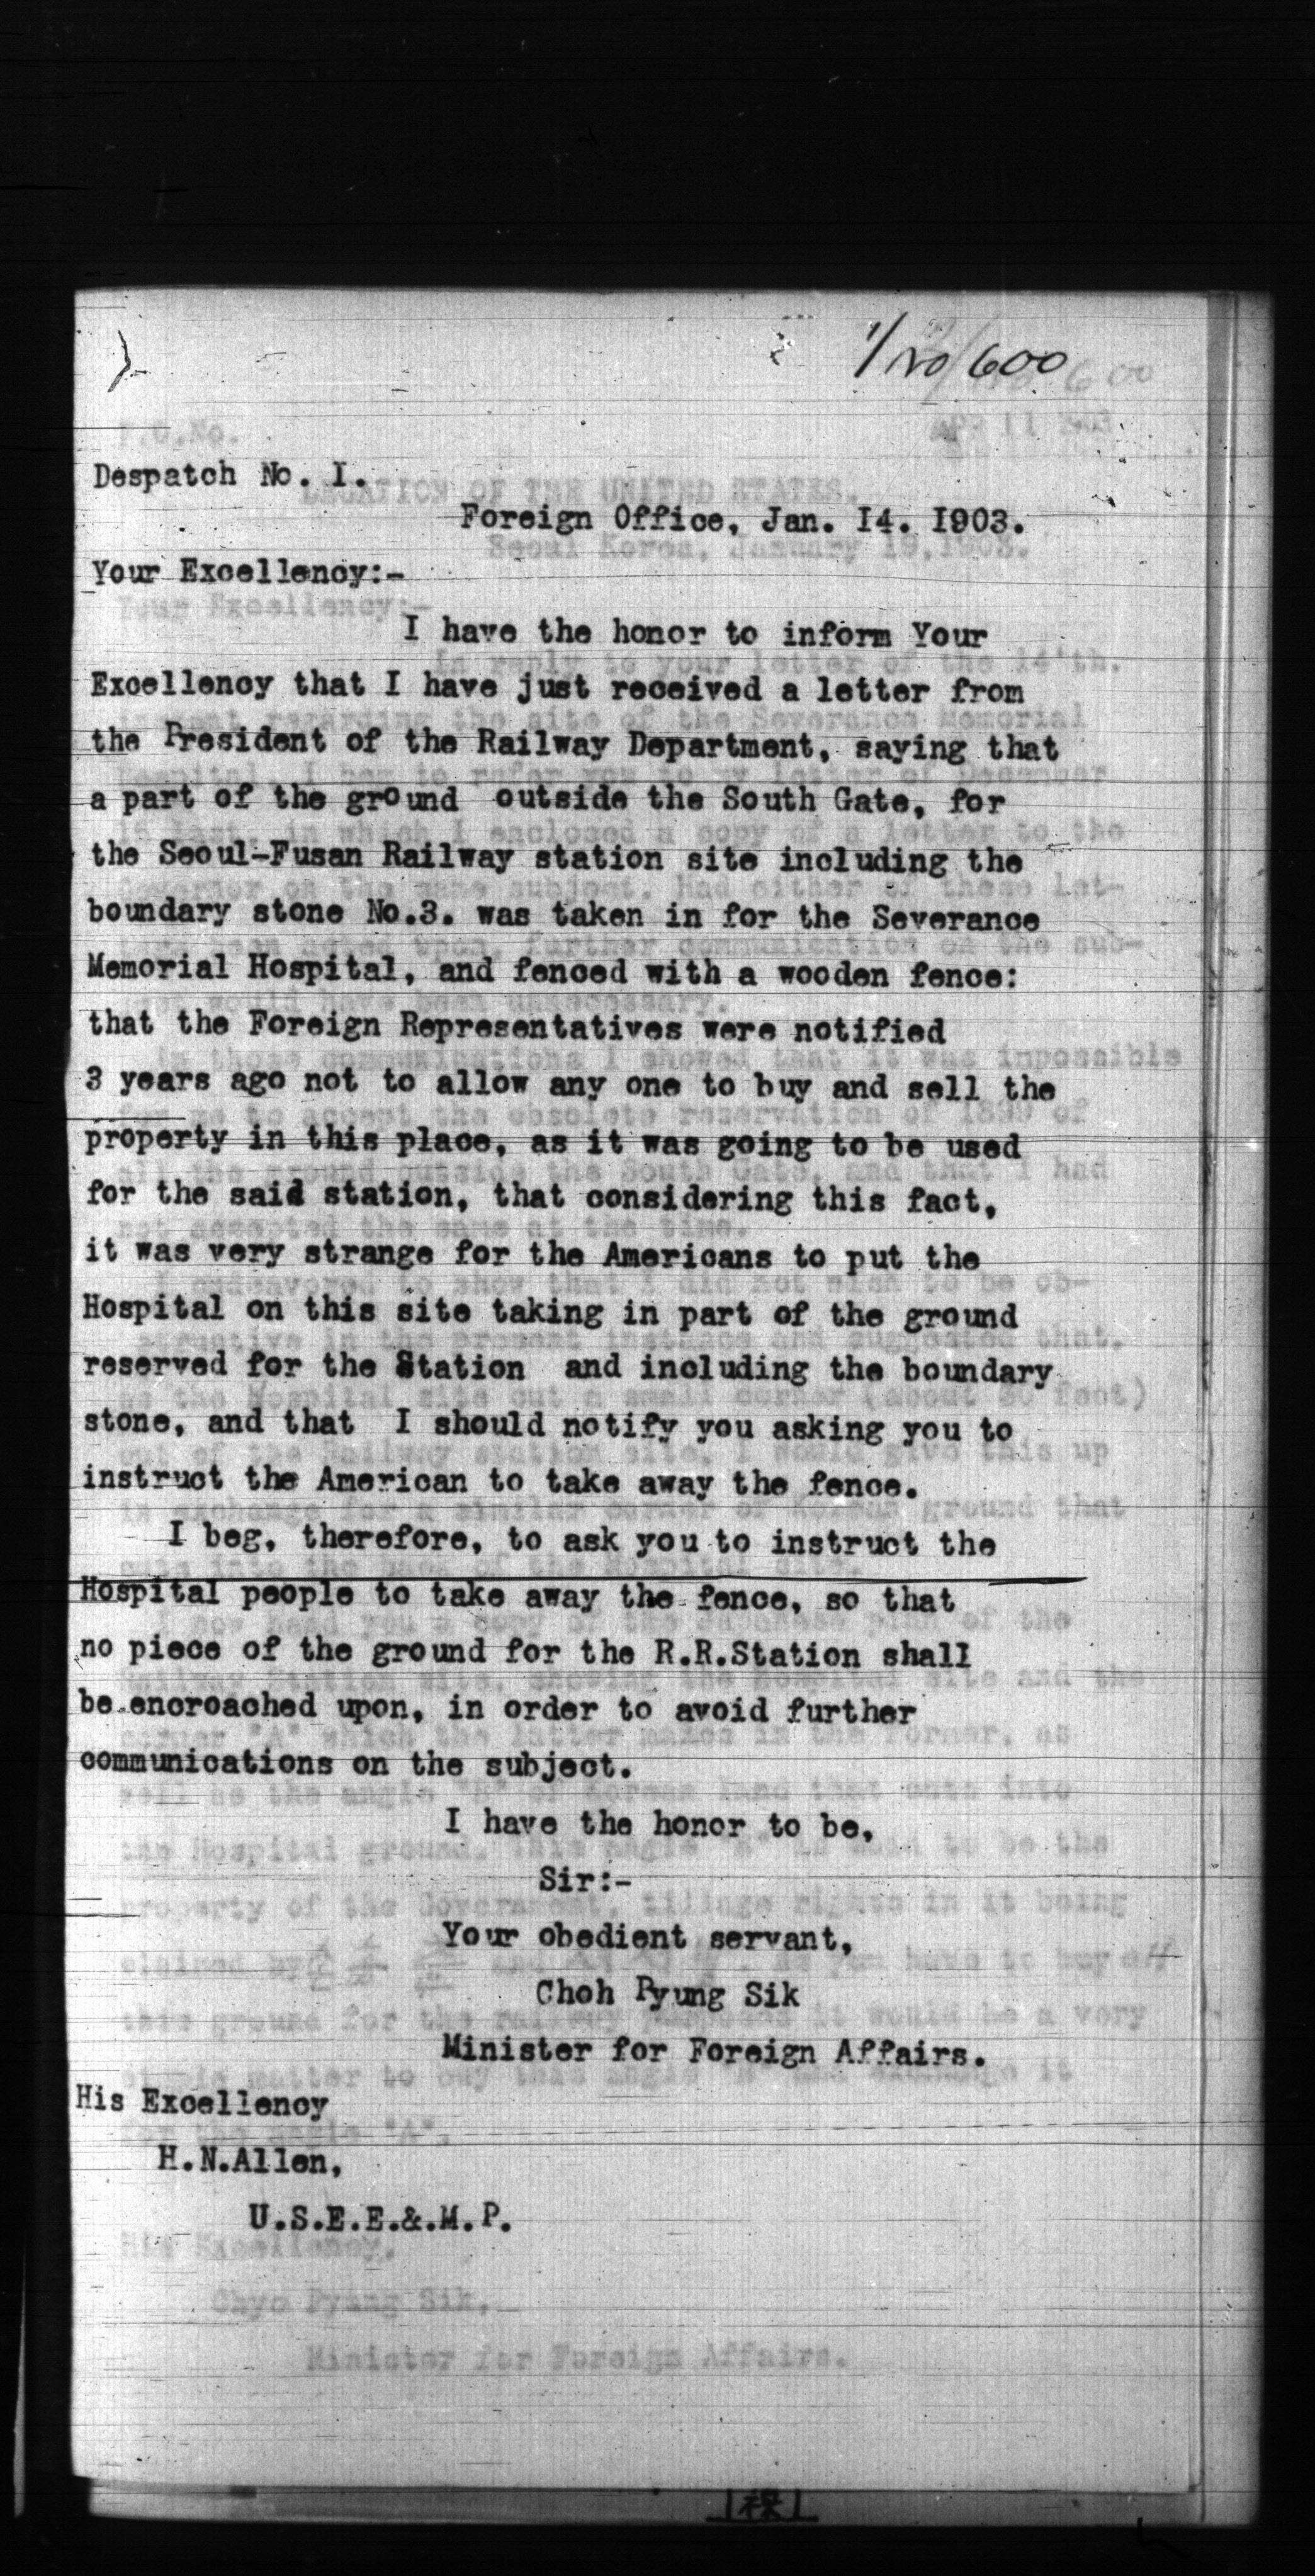 1/No 600
Despatch No. I.
Foreign Office, Jan. I4. I903.
Your Excellency:-
I have the honor to inform Your
Excellency that I have just received a letter from
the President of the Railway Department, saying that
a part of the ground outside the South Gate, for
the Seoul-Fusan Railway station site including the
boundary stone No.3. was taken in for the Severance
Memorial Hospital, and fenced with a wooden fence:
that the Foreign Representatives were notified
3 years ago not to allow any one to buy and sell the
property in this place, as it was going to be used
for the said station, that considering this fact,
it was very strange for the Americans to put the
Hospital on this site taking in part of the ground
reserved for the Station and including the boundary
stone, and that I should notify you asking you to
instruct the American to take away the fence.
I beg, therefore, to ask you to instruct the
Hospital people to take away the fence, so that
no piece of the ground for the R.R.Station shall
be encroached upon, in order to avoid further
communications on the subject.
I have the honor to be,
Sir:-
Your obedient servant,
Choh Pyung Sik
Minister for Foreign Affairs.
His Excellency
H.N.Allen,
U.S.E.E.&.M.P.